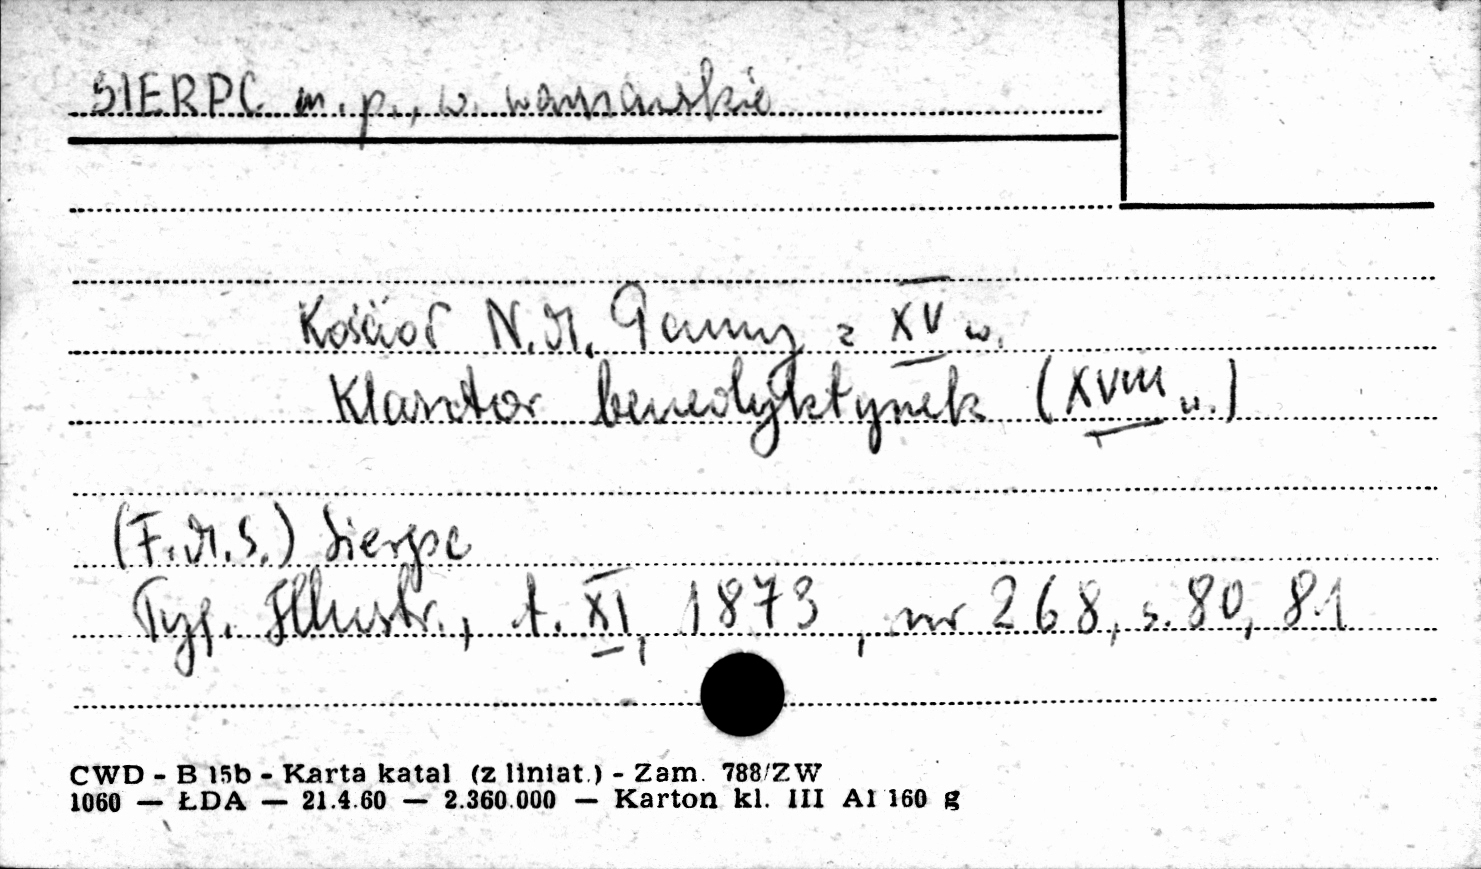 SIERPC m. p., w. warszawskie
Kościół N. M. Panny z XV w.
Klasztor benedyktynek (XVIII w.)
(F. M. S.) Sierpc
Tyg. Illustr., t. XI, 1873, nr 268, s. 80, 81
CWD - B 15b - Karta katal (z liniat.) - Zam. 788/ZW
1060 — ŁDA — 21.4.60 — 2.360.000 — Karton kl. III A1 160 g